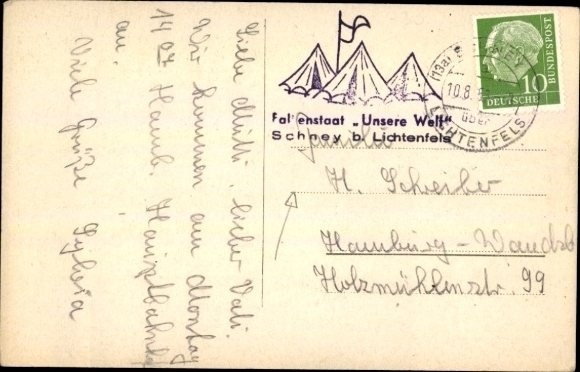 Liebe Mutti, lieber Vati.
Wir kommen am Montag
14 07 Hamb. Hauptbahnh
an.
Viele Grüße Sylvia
Falkenstaat „Unsere Welt"
Schney b. Lichtenfels
(13a)
10.8.
über
LICHTENFELS
10
DEUTSCHE BUNDESPOST
Familie
H. Schreiber
Hamburg-Wandsb
Holzmühlenstr. 99